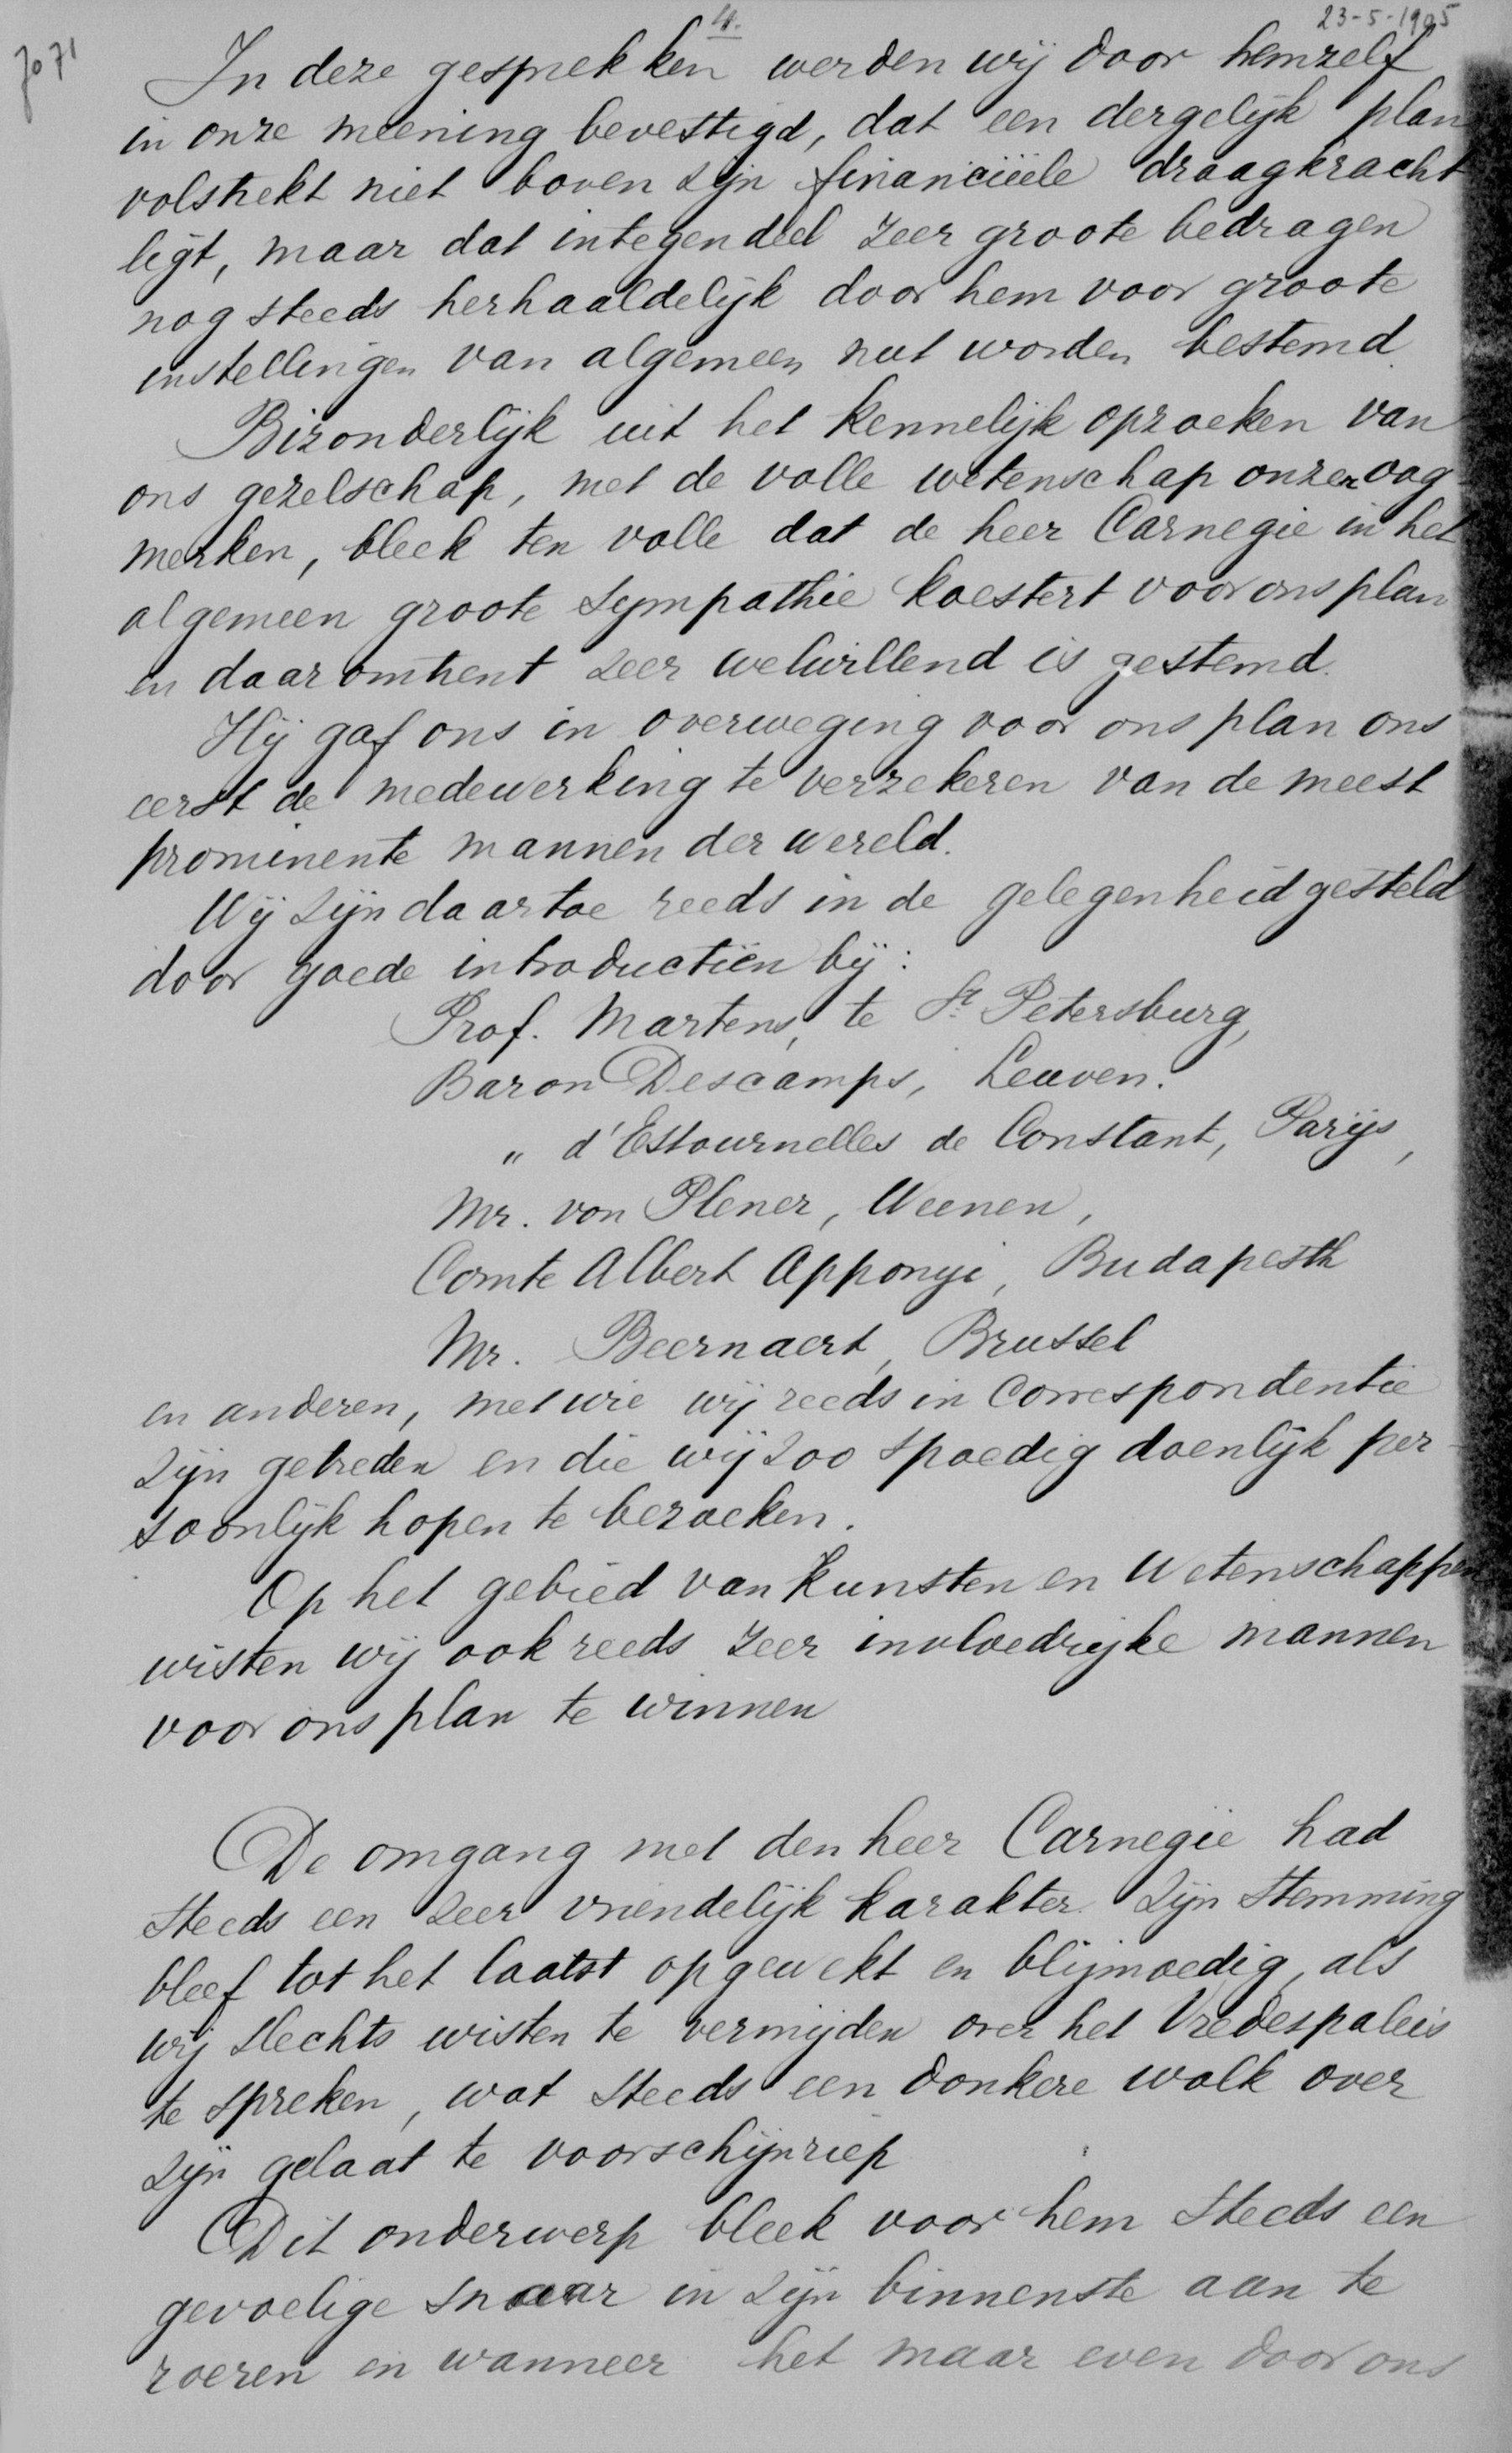 4.
23-5-1905
Jo 71
In deze gesprekken werden wij door hemzelf
in onze meening bevestigd, dat een dergelijk plan
volstrekt niet boven zijn financiëele draagkracht
ligt, maar dat integendeel zeer groote bedragen
nog steeds herhaaldelijk door hem voor groote
instellingen van algemeen nut worden bestemd.
Bizonderlijk uit het kennelijk opzoeken van
ons gezelschap, met de volle wetenschap onzer oog-
merken, bleek ten volle dat de heer Carnegie in het
algemeen groote sympathie koestert voor ons plan
en daaromtrent zeer welwillend is gestemd.
Hij gaf ons in overweging voor ons plan ons
eerst de medewerking te verzekeren van de meest
prominente mannen der wereld.
Wij zijn daartoe reeds in de gelegenheid gesteld
door goede introductiën bij:
Prof. Martens, te St. Petersburg,
Baron Descamps, Leuven.
" d'Estournelles de Constant, Parijs,
Mr. von Plener, Weenen,
Comte Albert Apponyi, Budapesth
Mr. Beernaert, Brussel
en anderen, met wie wij reeds in Correspondentie
zijn getreden en die wij zoo spoedig doenlijk per-
soonlijk hopen te bezoeken.
Op het gebied van Kunsten en Wetenschappen
wisten wij ook reeds zeer invloedrijke mannen
voor ons plan te winnen
De omgang met den heer Carnegie had
steeds een zeer vriendelijk karakter. Zijn stemming
bleef tot het laatst opgewekt en blijmoedig, als
wij slechts wisten te vermijden over het Vredespaleis
te spreken, wat steeds een donkere wolk over
zijn gelaat te voorschijn riep
Dit onderwerp bleek voor hem steeds een
gevoelige snaar in zijn binnenste aan te
roeren en wanneer het maar even door ons